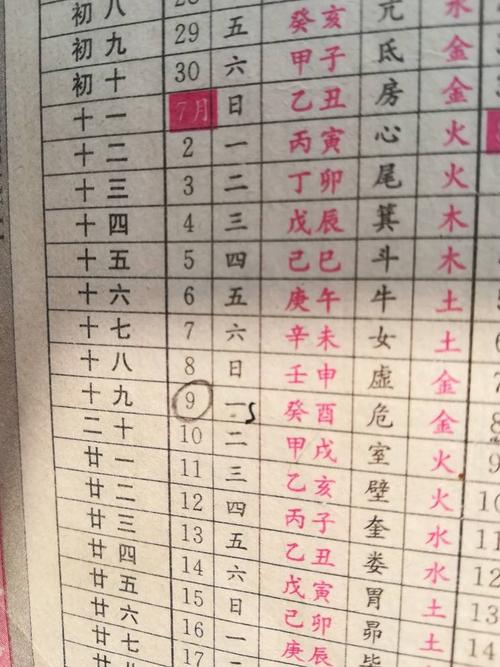 初八
初九 29 五 癸亥 亢 水
初十 30 六 甲子 氐 金
十一 7月 日 乙丑 房 金
十二 2 一 丙寅 心 火
十三 3 二 丁卯 尾 火
十四 4 三 戊辰 箕 木
十五 5 四 己巳 斗 木
十六 6 五 庚午 牛 土
十七 7 六 辛未 女 土
十八 8 日 壬申 虚 金 7
十九 9 一 癸酉 危 金 8
二十 10 二 甲戌 室 火 9
廿一 11 三 乙亥 壁 火 10
廿二 12 四 丙子 奎 水 11
廿三 13 五 乙丑 娄 水 12
廿四 14 六 戊寅 胃 土 13
廿五 15 日 己卯 昴 土 14
廿六 16 一 庚辰
廿七 17